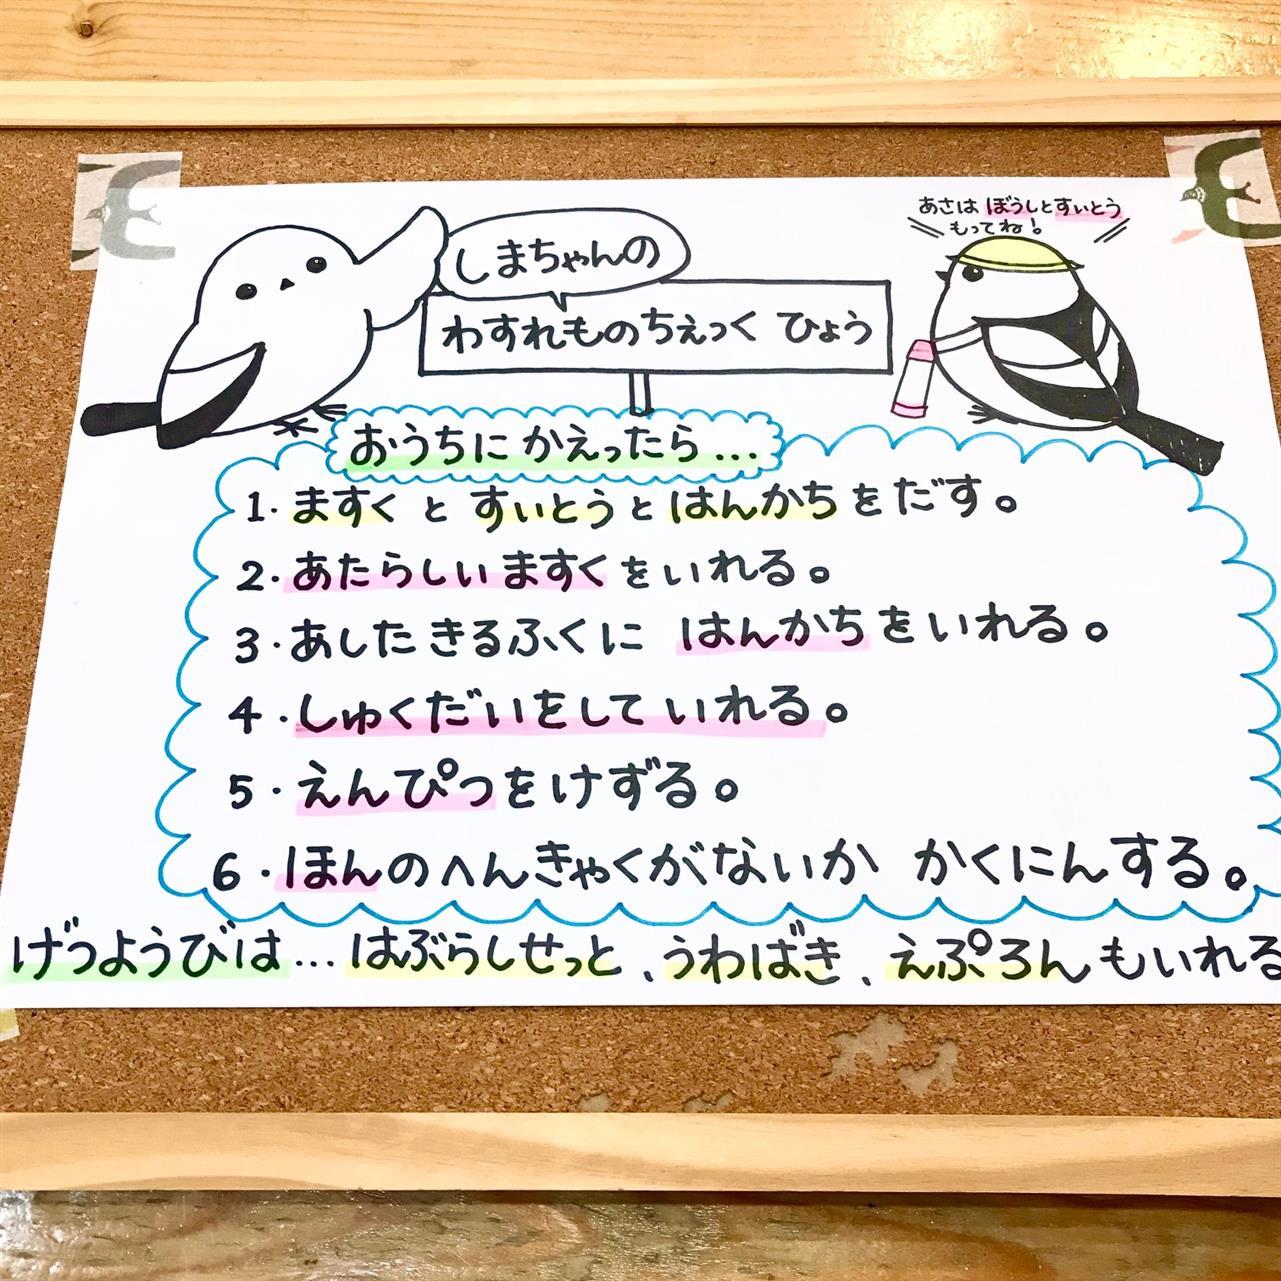 あさは ぼうしとすいとう
もってね!
しまちゃんの
わすれものちぇっく ひょう
おうちに かえったら...
1. ますく と すいとう と はんかち をだす。
2. あたらしい ますく をいれる。
3. あした きるふくに はんかち をいれる。
4. しゅくだいをして いれる。
5. えんぴつをけずる。
6. ほんのへんきゃくがないか かくにんする。
げつようびは...はぶらしせっと、うわばき、えぷろんもいれる